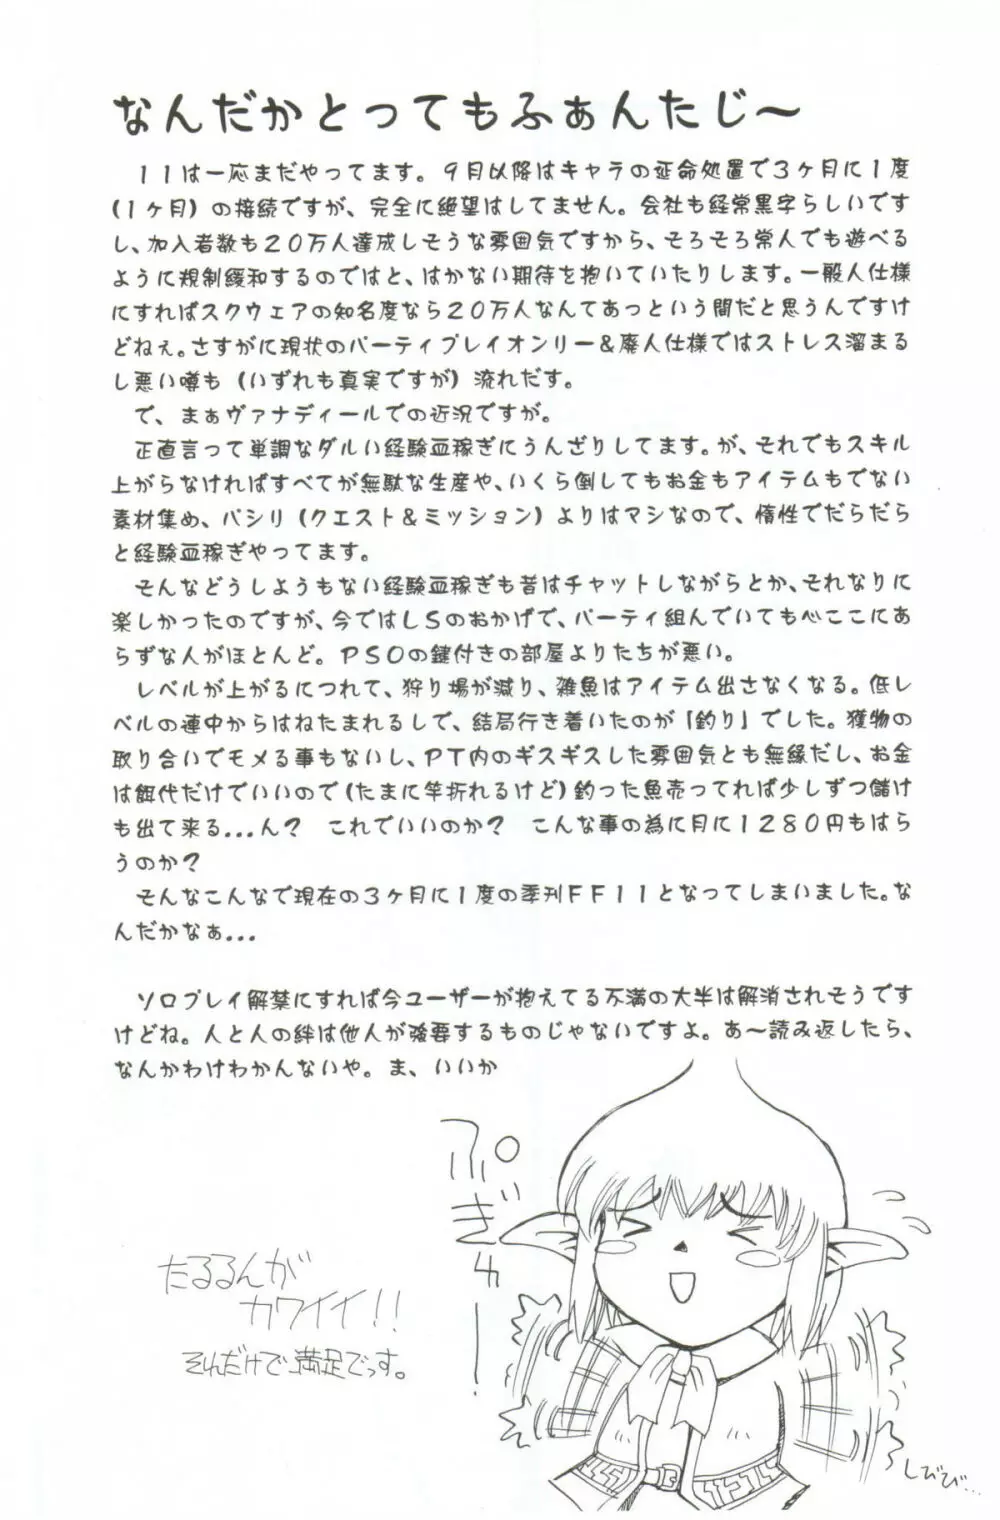 なんだかとってもふぁんたじ〜
１１は一応まだやってます。９月以降はキャラの延命処置で３ケ月に１度
(１ヶ月) の接続ですが、完全に絶望はしてません。会社も経常黒字らしいです
し、加入者数も２０万人達成しそうな雰囲気ですから、そろそろ常人でも遊べる
ように規制緩和するのではと、はかない期待を抱いていたりします。一般人仕様
にすればスクウェアの知名度なら２０万人なんてあっという間だと思うんですけ
どねぇ。さすがに現状のパーティプレイオンリー＆廃人仕様ではストレス溜まる
し悪い噂も (いずれも真実ですが) 流れだす。
で、まぁヴァナディールでの近況ですが。
正直言って単調なダルい経験血稼ぎにうんざりしてます。が、それでもスキル
上がらなければすべてが無駄な生産や、いくら倒してもお金もアイテムもでない
素材集め、パシリ (クエスト＆ミッション) よりはマシなので、惰性でだらだら
と経験血稼ぎやってます。
そんなどうしようもない経験血稼ぎも昔はチャットしながらとか、それなりに
楽しかったのですが、今ではＬＳのおかげで、パーティ組んでいても心ここにあ
らずな人がほとんど。ＰＳＯの鍵付きの部屋よりたちが悪い。
レベルが上がるにつれて、狩り場が減り、雑魚はアイテム出さなくなる。低レ
ベルの連中からはねたまれるしで、結局行き着いたのが「釣り」でした。獲物の
取り合いでモメる事もないし、ＰＴ内のギスギスした雰囲気とも無縁だし、お金
は餌代だけでいいので (たまに竿折れるけど) 釣った魚売ってれば少しずつ儲け
も出て来る...ん？　これでいいのか？　こんな事の為に月に１２８０円もはら
うのか？
そんなこんなで現在の３ヶ月に１度の季刊ＦＦ１１となってしまいました。な
んだかなぁ...
ソロプレイ解禁にすれば今ユーザーが抱えてる不満の大半は解消されそうです
けどね。人と人の絆は他人が強要するものじゃないですよ。あ〜読み返したら、
なんかわけわかんないや。ま、いいか
ぷぎゅー！
たるるんが
カワイイ!!
それだけで満足でっす。
しびび...